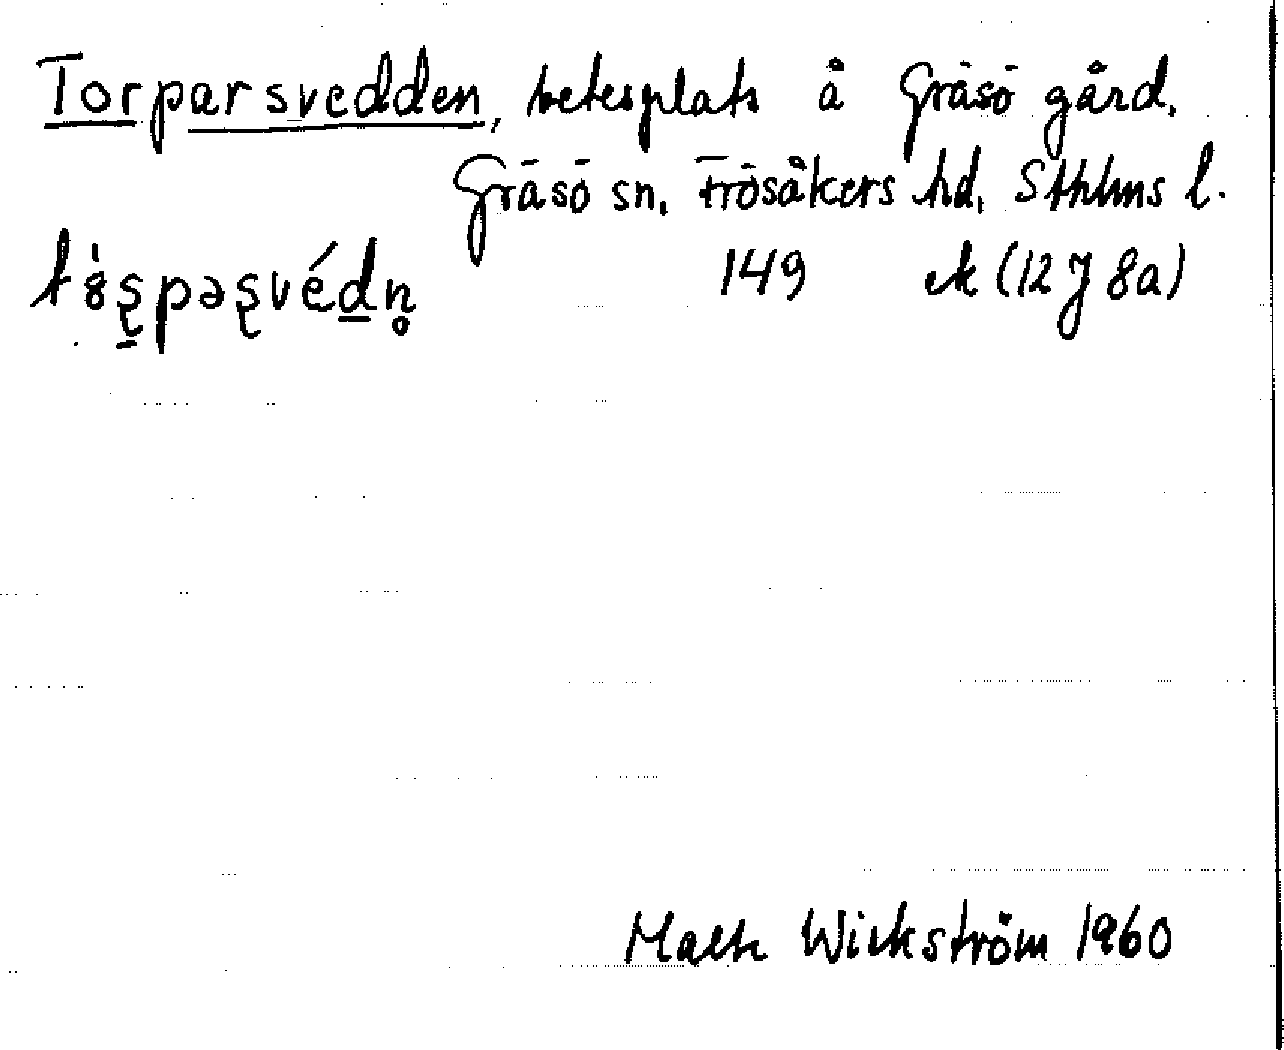 Torparsvedden, betesplats å Gräsö gård,
Gräsö sn, Frösåkers hd, Sthlms l.
149 ek (12 J 8a)
Malte Wickström 1960